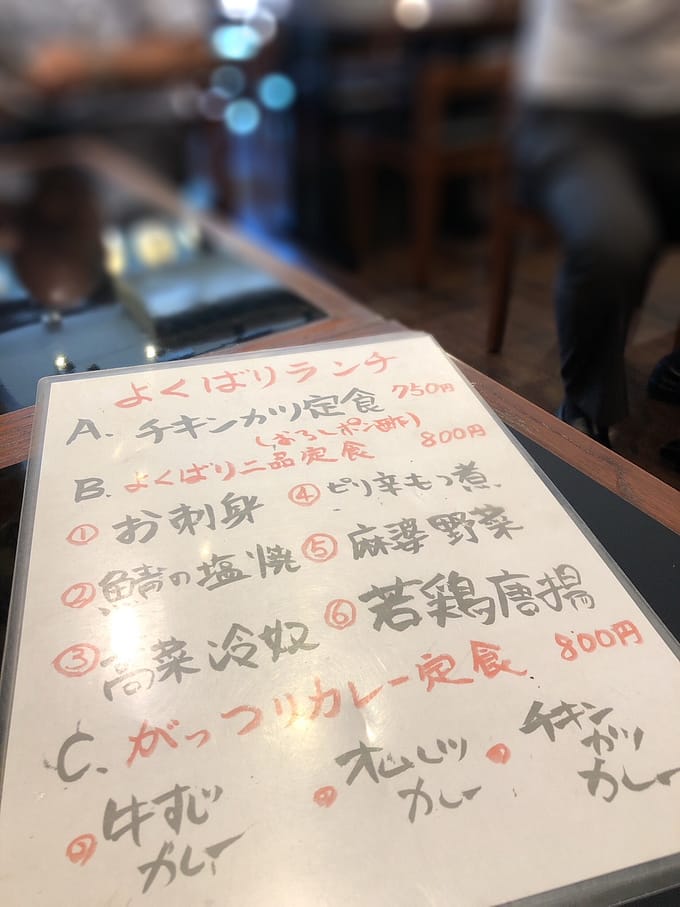 よくばりランチ
A. チキンカツ定食 750円
(おろしポン酢)
B. よくばり二品定食 800円
① お刺身 ④ ピリ辛もつ煮
② 鯖の塩焼 ⑤ 麻婆野菜
③ 高菜冷奴 ⑥ 若鶏唐揚
C. がっつりカレー定食 800円
牛すじカレー
オムレツカレー
チキンカツカレー